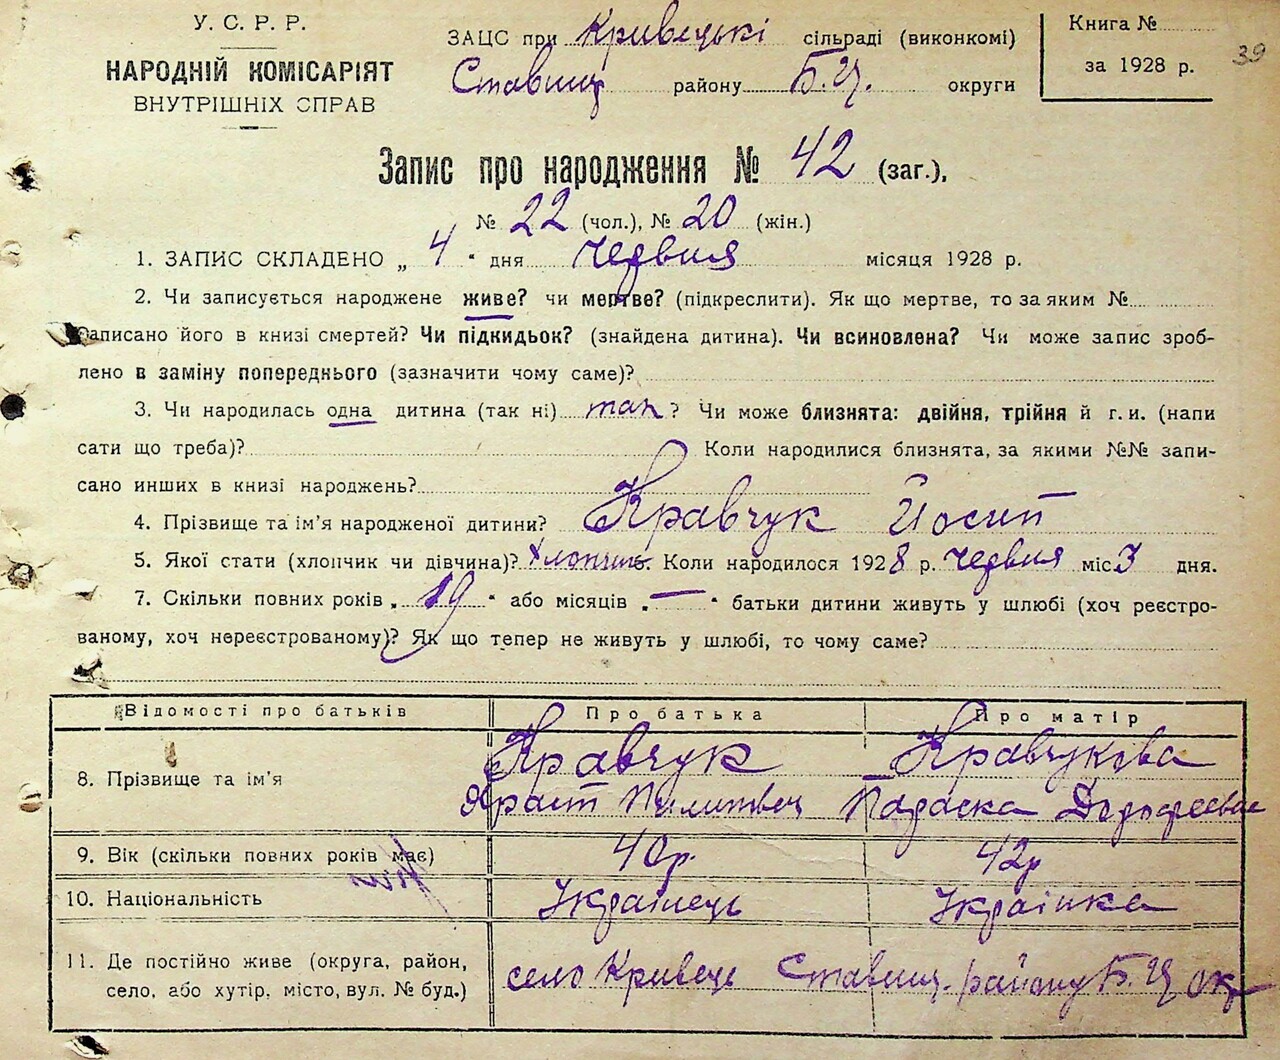 У. С. Р. Р.
НАРОДНІЙ КОМІСАРІЯТ
ВНУТРІШНІХ СПРАВ
ЗАЦС при Кривецькі сільраді (виконкомі)
Ставищ району Б. Ц. округи
Книга №
за 1928 р.
39
Запис про народження № 42 (заг.),
№ 22 (чол.), № 20 (жін.)
1. ЗАПИС СКЛАДЕНО „ 4 “ дня червня місяця 1928 р.
2. Чи записується народжене живе? чи мертве? (підкреслити). Як що мертве, то за яким №
записано його в книзі смертей? Чи підкидьок? (знайдена дитина). Чи всиновлена? Чи може запис зроб-
лено в заміну попереднього (зазначити чому саме)?
3. Чи народилась одна дитина (так ні) так ? Чи може близнята: двійня, трійня й г. и. (напи
сати що треба)? Коли народилися близнята, за якими №№ запи-
сано инших в книзі народжень?
4. Прізвище та ім’я народженої дитини? Кравчук Йосип
5. Якої стати (хлопчик чи дівчина)? Хлопчик. Коли народилося 1928 р. червня міс. 3 дня.
7. Скільки повних років „ 19 “ або місяців „ — “ батьки дитини живуть у шлюбі (хоч реєстро-
ваному, хоч нереєстрованому)? Як що тепер не живуть у шлюбі, то чому саме?
Відомості про батьків Про батька Про матір
8. Прізвище та ім’я Кравчук Кравчукова
Параска
9. Вік (скільки повних років має) 40р. 42р
10. Національність Українець Українка
11. Де постійно живе (округа, район,
село, або хутір, місто, вул. № буд.)
село Кривець Ставищ. району Б. Ц ок